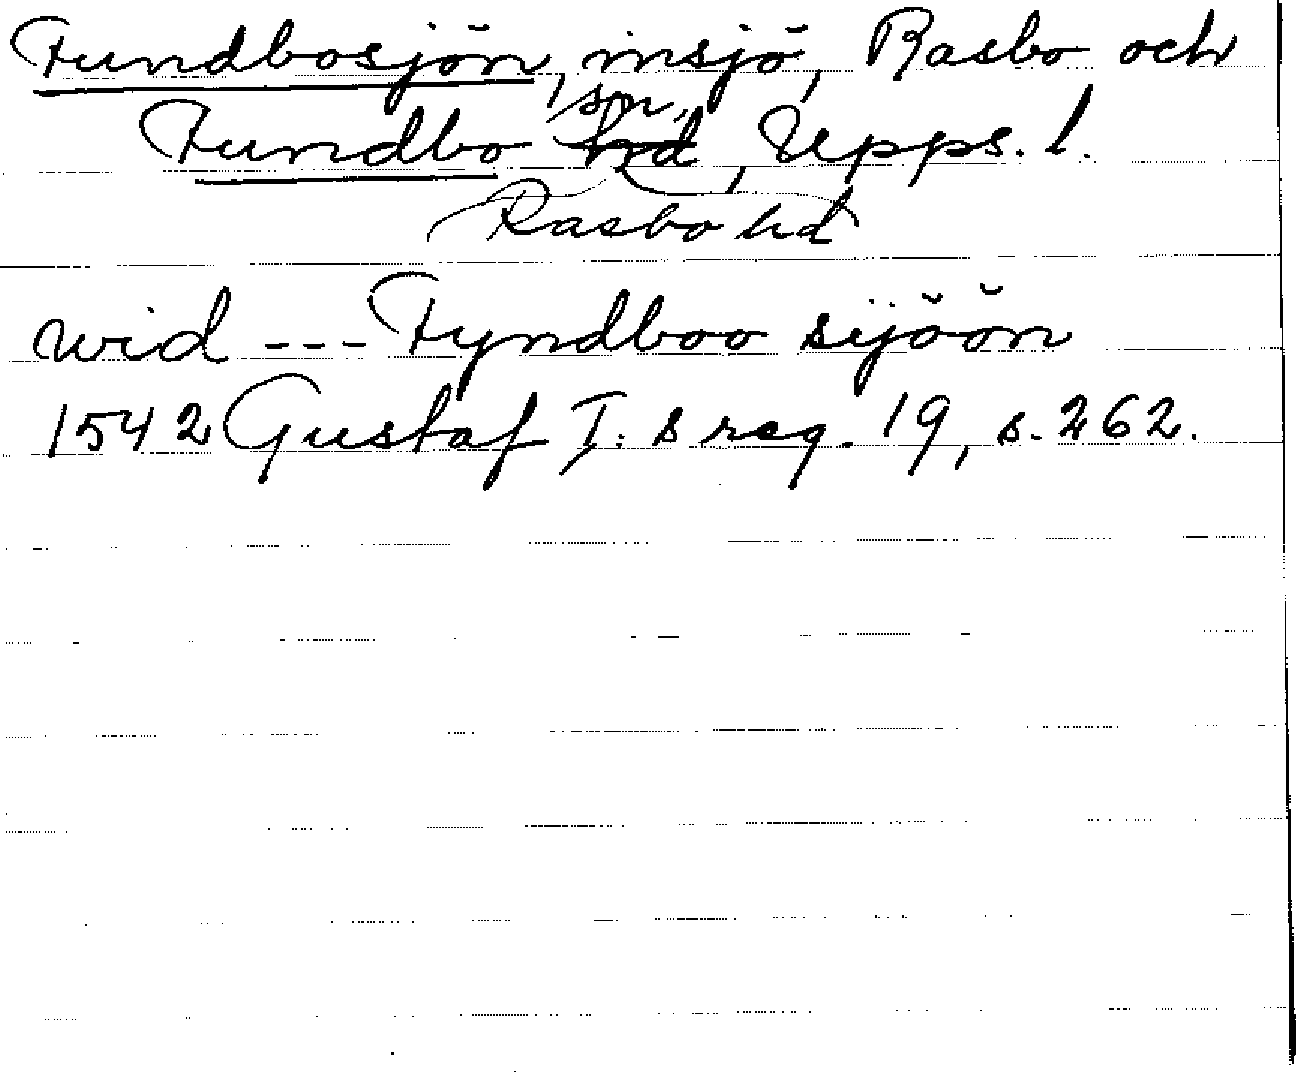 Fundbosjön, insjö, Rasbo och
Fundbo hd sn, Upps. l.
Rasbo hd
wid --- Fyndboo sijöön
1542 Gustaf I:s reg. 19, s. 262.